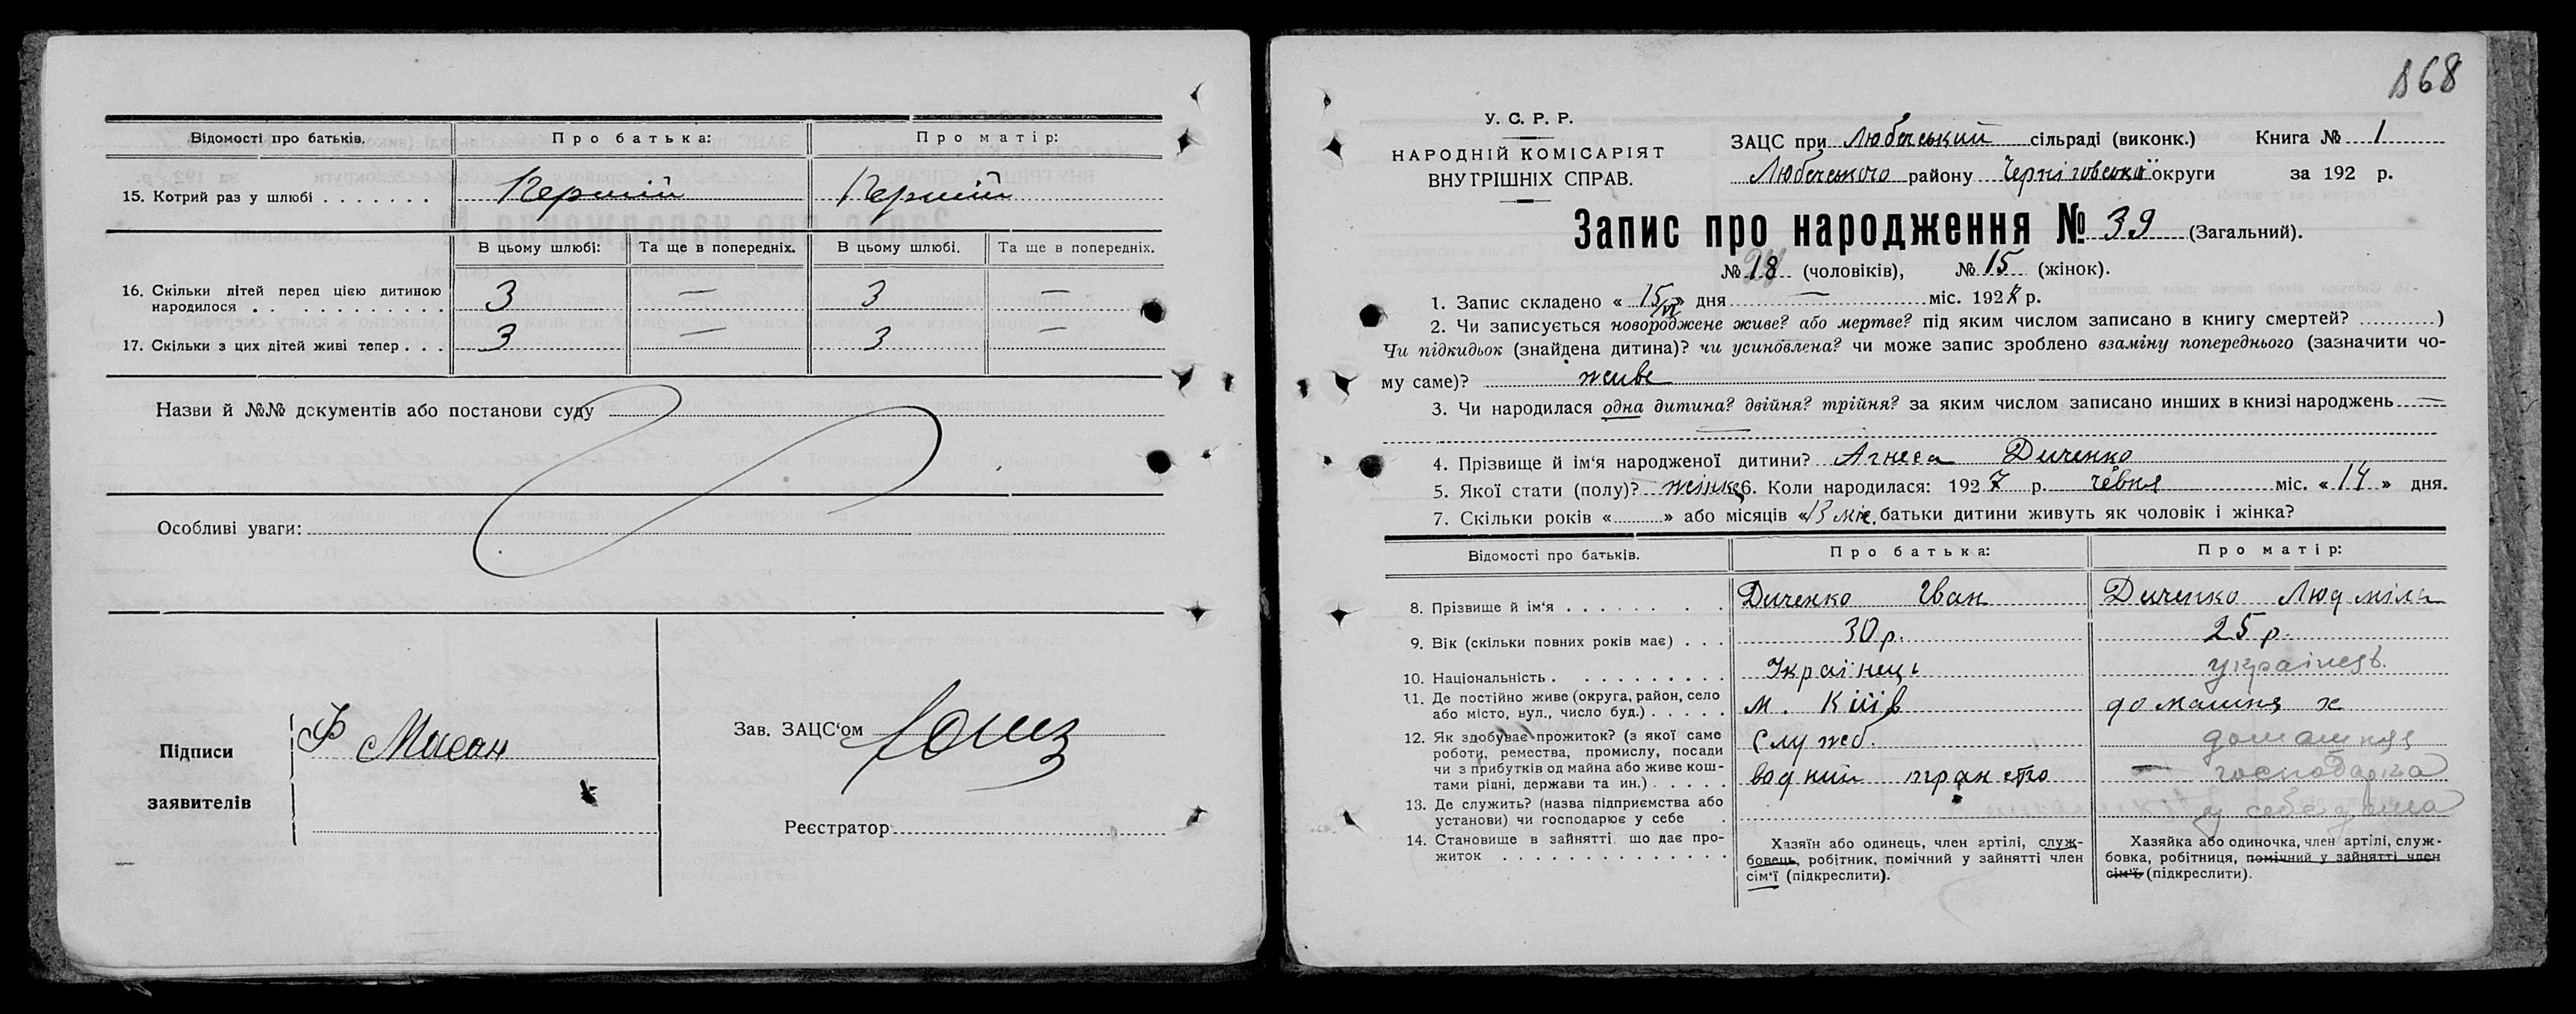 Відомості про батьків. Про батька: Про матір:
15. Котрий раз у шлюбі . . . . . . . Перший Перший
В цьому шлюбі: Та ще в попередніх. В цьому шлюбі. Та ще в попередніх.
16. Скільки дітей перед цією дитиною
народилося . . . . . . . . . . . 3 — 3 —
17. Скільки з цих дітей живі тепер . . . 3 — 3 —
Назви й №№ документів або постанови суду
Особливі уваги:
Підписи
заявителів
Зав. ЗАЦС‘ом
Реєстратор
868
У. С. Р. Р.
НАРОДНІЙ КОМІСАРІЯТ
ВНУТРІШНІХ СПРАВ.
ЗАЦС при Любечський сільраді (виконк.) Книга № 1
Любечського району Черніговської округи за 192 р.
Запис про народження № 39 (Загальний).
№ 18 (чоловіків), № 15 (жінок).
1. Запис складено « 15/VI » дня — міс. 192 р.
2. Чи записується новороджене живе? або мертве? під яким числом записано в книгу смертей? ...........)
Чи підкидьок (знайдена дитина)? чи усиновлена? чи може запис зроблено взаміну попереднього (зазначити чо-
му саме)? живе
3. Чи народилася одна дитина? двійня? трійня? за яким числом записано инших в книзі народжень —
4. Прізвище й ім‘я народженої дитини? Агнеса Диченко
5. Якої стати (полу)? 6. Коли народилася: 1927 р. міс. « 14 » дня.
7. Скільки років «..........» або місяців «13 міс. батьки дитини живуть як чоловік і жінка?
Відомості про батьків. Про батька: Про матір:
8. Прізвище й ім‘я . . . . . . . . Диченко Іван Диченко Людміла
9. Вік (скільки повних років має) . . . 30 р. 25 р.
10. Національність . . . . . . . . . . Українець
11. Де постійно живе (округа, район, село
або місто, вул., число буд.) . . . . . м. Київ домашня х
12. Як здобуває прожиток? (з якої саме
роботи, ремества, промислу, посади
чи з прибутків од майна або живе кош-
тами рідні, держави та ин.) . . . . . Служб. домашняя
водний — господарка
13. Де служить? (назва підприємства або
установи) чи господарює у себе . у себе дома
14. Становище в зайнятті що дає про-
житок . . . . . . . . . . . . . .
Хазяїн або одинець, член артілі, служ-
бовець, робітник, помічний у зайнятті член
сім‘ї (підкреслити).
Хазяйка або одиночка, член артілі, служ-
бовка, робітниця, помічний у зайнятті член
сім‘ї (підкреслити).